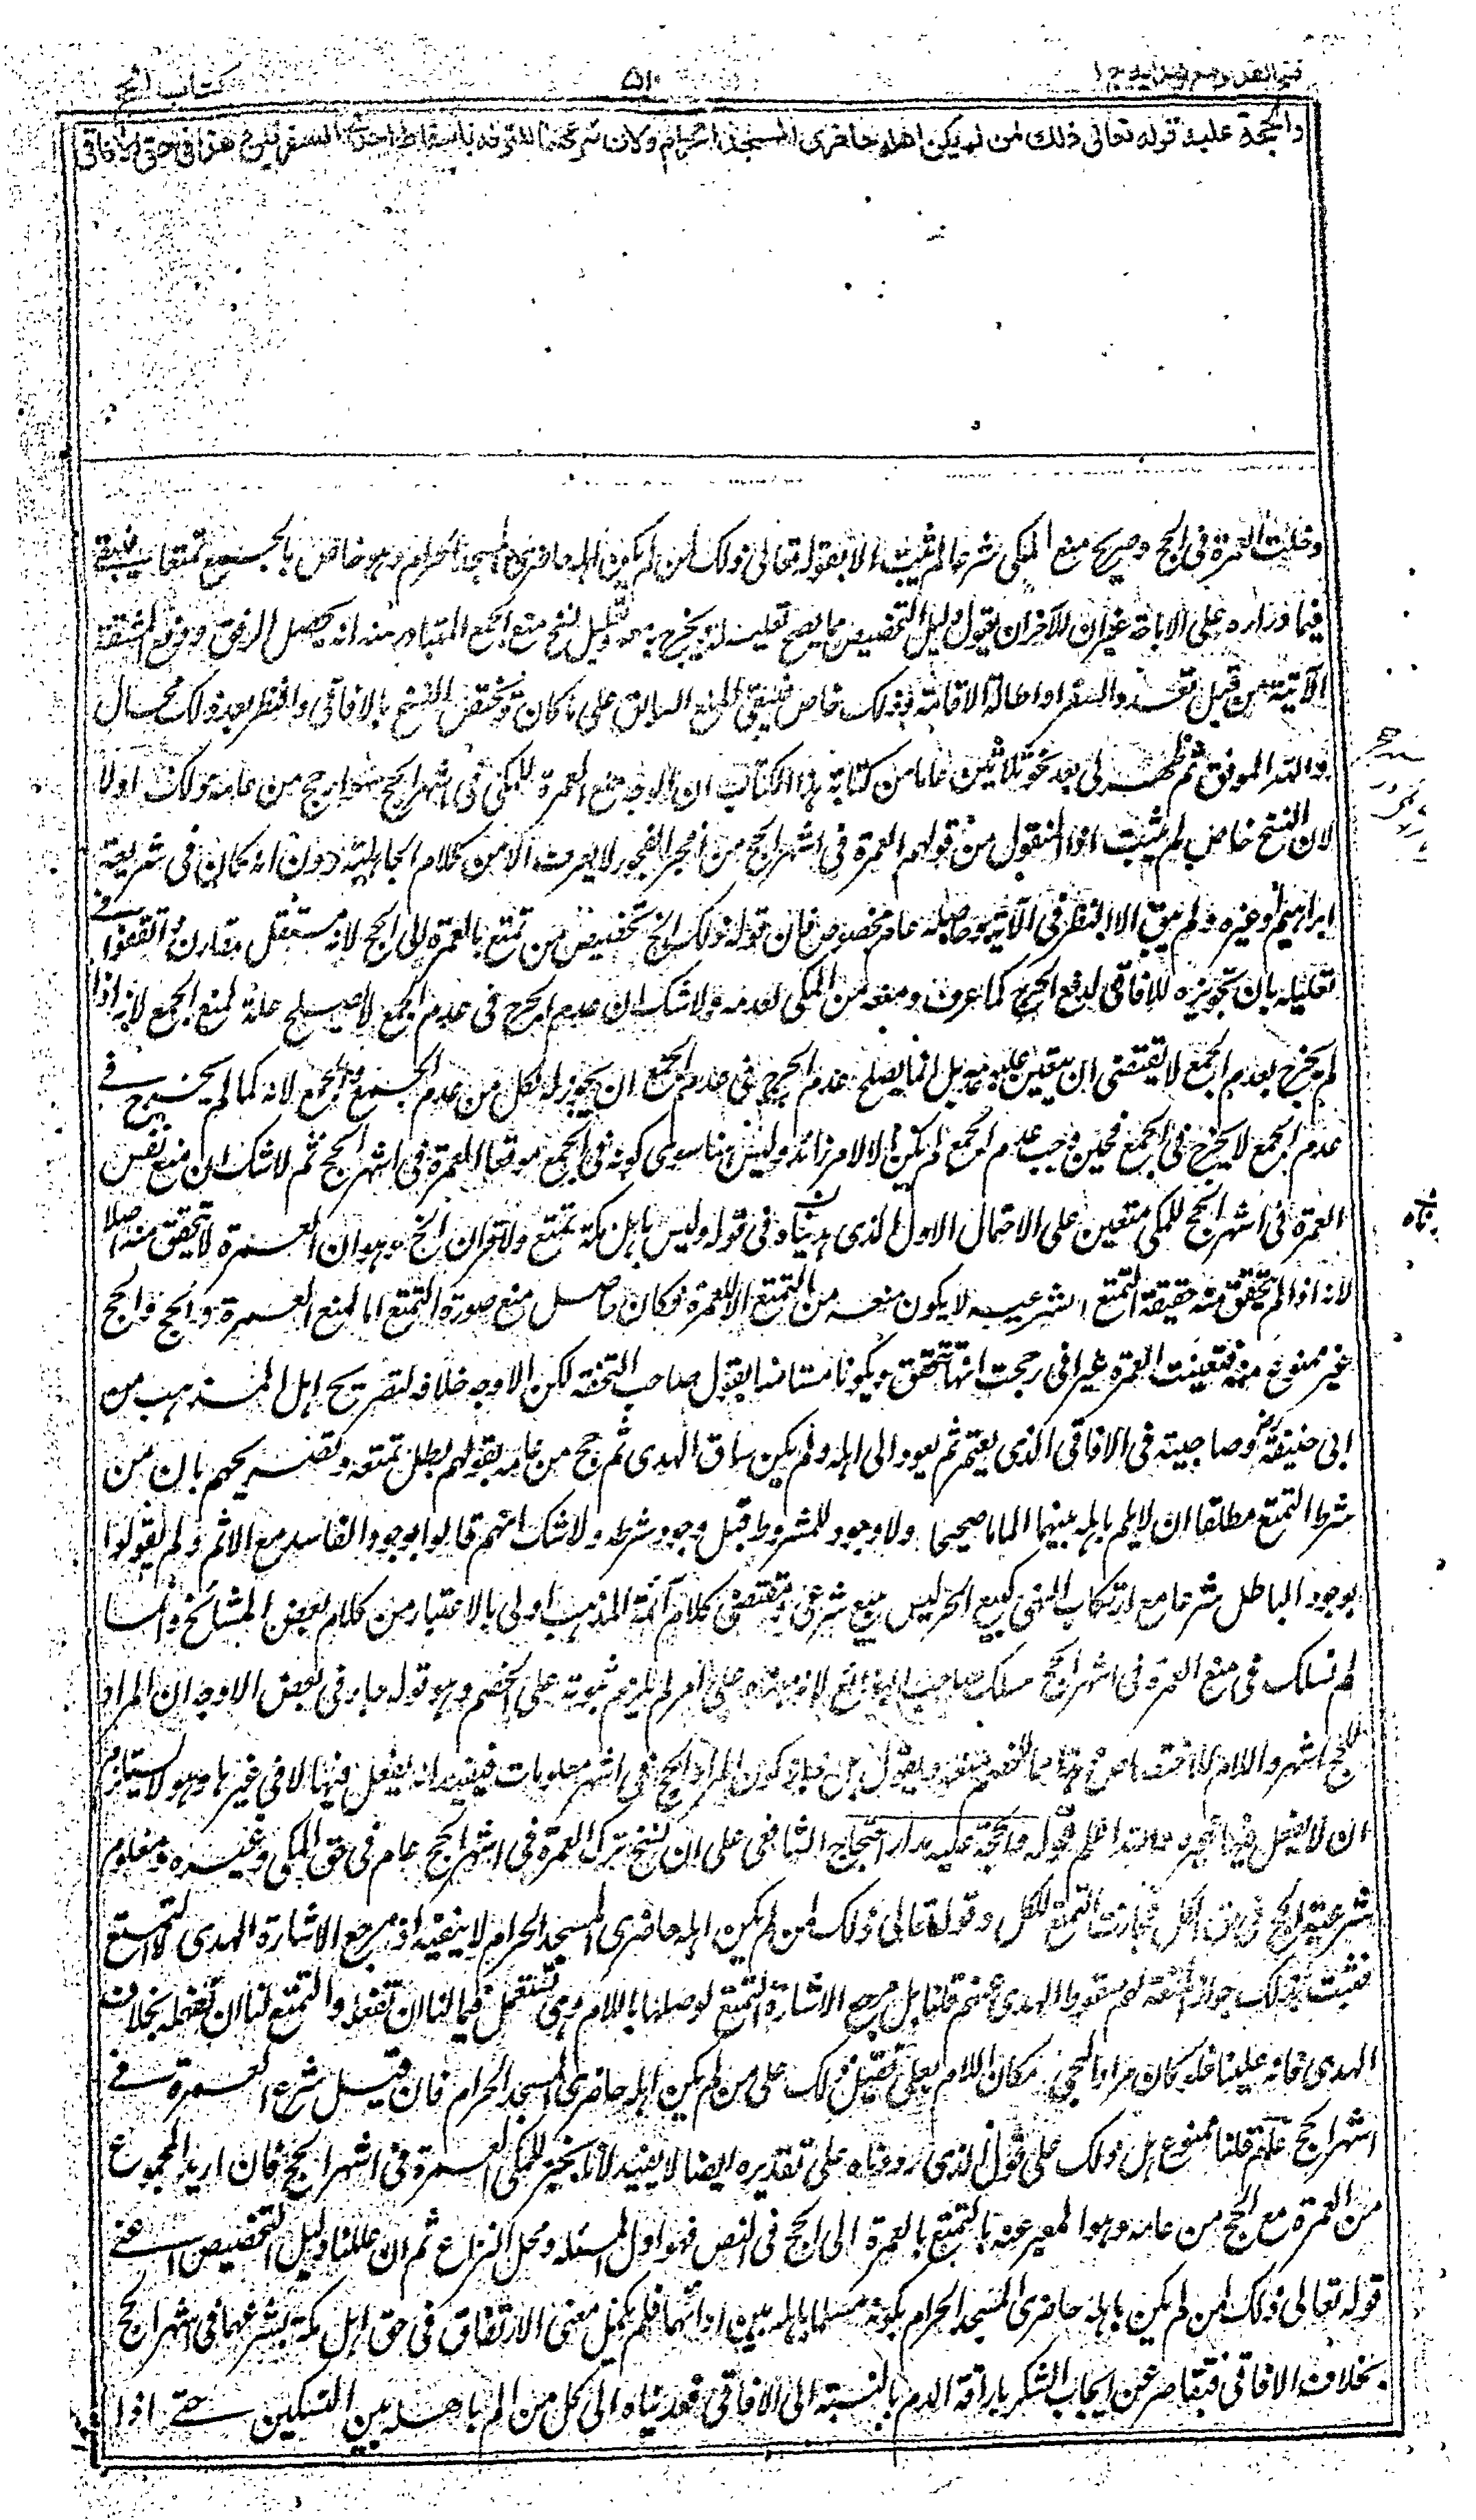 فتح القدير مع هداية ج ١
٥١٠
كتاب الحج
والحجة عليه قوله تعالى ذلك لمن لم يكن اهله حاضرى المسجد الحرام ولان شرعهما للترفه باسقاط احدى السفرتين وهذا فى حق الافاقى
دخلت العمرة فى الحج وصريح منع المكى شرعا لم يثبت الا بقوله تعالى ذلك لمن لم يكن اهله حاضرى المسجد الحرام وهو خاص بالجمع تمتعا فيبقى
فيما وراءه على الاباحة غير ان للآخر ان يقول دليل التخصيص مما يصح تعليله ويخرج به معه وتعليل نسخ منع الجمع المتبادر منه انه يحصل الرفق ودفع المشقة
الآتية من قبل تعدد السفر او اطالة الاقامة وذلك خاص فيبقى المنع السابق على ما كان ويختص النسخ بالافاقى والنظر بعد ذلك مجال
والله الموفق ثم ظهر لى بعد نحو ثلاثين عاما من كتابة هذا الكتاب ان الوجه منع العمرة للمكى فى اشهر الحج سواء حج من عامه ذلك او لا
لان النسخ خاص لم يثبت اذ المنقول من قولهم العمرة فى اشهر الحج من افجر الفجور لا يعرف الا من كلام الجاهلية دون انه كان فى شريعة
ابراهيم او غيره ولم يبق الا النظر فى الآية وحاصله عام مخصوص فان قوله ذلك الخ تخصيص من تمتع بالعمرة الى الحج لانه مستقل مقارن واتفقوا فى
تعليله بان تجويزه للافاقى لدفع الحرج كما عرف ومنعه من المكى لعدمه ولا شك ان عدم الحرج فى عدم الجمع لا يصلح علة لمنع الجمع لانه اذا
لم يحرج بعدم الجمع لا يقتضى ان يتعين عليه عدمه بل انما يصلح عدم الحرج فى عدم الجمع ان يجوز له كل من عدم الجمع والجمع لانه كما لم يحرج فى
عدم الجمع لا يحرج فى الجمع فحين وجب عدم الجمع لم يكن الا لامر زائد وليس هنا سوى كونه فى الجمع موقعا العمرة فى اشهر الحج ثم لا شك ان منع نفس
العمرة فى اشهر الحج للمكى متعين على الاحتمال الاول الذى ابديناه فى قوله وليس باهل مكة تمتع ولا قران الخ وهو ان العمرة لا تتحقق منه اصلا
لانه اذا لم تتحقق منه حقيقة التمتع الشرعيه لا يكون منعه من التمتع الا للعمرة فكان حاصل منع صورة التمتع اما لمنع العمرة والحج والحج
غير ممنوع منه فتعينت العمرة غير انى رجحت انها تتحقق ويكون مستانسا بقول صاحب التحفة لكن الاوجه خلافه لتصريح اهل المذهب من
ابى حنيفة وصاحبيه فى الافاقى الذى يعتمر ثم يعود الى اهله ولم يكن ساق الهدى ثم حج من عامه بقولهم بطل تمتعه وتصريحهم بان من
شرط التمتع مطلقا ان لا يلم باهله بينهما الماما صحيحا ولا وجود للمشروط قبل وجود شرطه ولا شك انهم قالوا بوجود الفاسد مع الاثم ولم يقولوا
بوجود الباطل شرعا مع ارتكاب النهى كبيع الحر ليس ببيع شرعى ومقتضى كلام ائمة المذهب اولى بالاعتبار من كلام بعض المشائخ وانما
لم نسلك فى منع العمرة فى اشهر الحج مسلك صاحب البدائع لانه بناه على امر لم يلزم ثبوته على الخصم وهو قوله جاء فى بعض الاوجه ان المراد
للحج اشهر واللام للاختصاص وهذا مما للخصم منعه ويقول بل جاز كون المراد الحج فى اشهر معلومات فيفيد انه يفعل فيها لا فى غيرها وهو لا يستلزم
ان لا يفعل فيها غيره والله اعلم قوله والحجة عليه مدار احتجاج الشافعى على ان نسخ ترك العمرة فى اشهر الحج عام فى حق المكى وغيره ومعلوم
شرعية الحج فى حق الكل فجاز التمتع للكل وقوله تعالى ذلك لمن لم يكن اهله حاضرى المسجد الحرام لا ينفيه اذ مرجع الاشارة الهدى لا التمتع
فثبت بذلك جواز المتعة لهم وسقوط الهدى عنهم قلنا بل مرجع الاشارة التمتع لوصلها باللام وهى تستعمل فيما لنا ان نفعله والتمتع لنا ان نفعله بخلاف
الهدى فانه علينا فلو كان مرادا لجىء مكان اللام بعلى فقيل ذلك على من لم يكن اهله حاضرى المسجد الحرام فان قيل شرع العمرة فى
اشهر الحج عام قلنا ممنوع بل ذلك على قول الذى رددناه على تقديره ايضا لا يفيد لانا نجيز للمكى العمرة فى اشهر الحج فان اريد المجموع
من العمرة مع الحج من عامه وهو المعبر عنه بالتمتع بالعمرة الى الحج فى النص فهو اول المسئلة ومحل النزاع ثم ان عللنا دليل التخصيص اعنى
قوله تعالى ذلك لمن لم يكن اهله حاضرى المسجد الحرام بكونه ملما باهله بين ادائهما فلم يكمل معنى الارتفاق فى حق اهل مكة بشرعهما فى اشهر الحج
بخلاف الافاقى فتقاصر عن ايجاب الشكر باراقة الدم بالنسبة الى الافاقى فعديناه الى كل من الم باهله بين النسكين حتى اذا